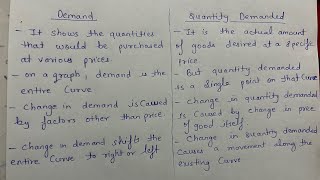 Demand
- It shows the quantities
that would be purchased
at various prices
- on a graph, demand is the
entire Curve
- Change in demand is Caused
by factors other than price.
- change in demand shifts the
entire Curve to right or left
Quantity Demanded
- It is the actual amount
of goods desired at a specific
price
- But quantity demanded
is a single point on that Curve
- Change in quantity demanded
is Caused by change in price
of good itself
- Change in quantity demanded
Causes a movement along the
existing Curve